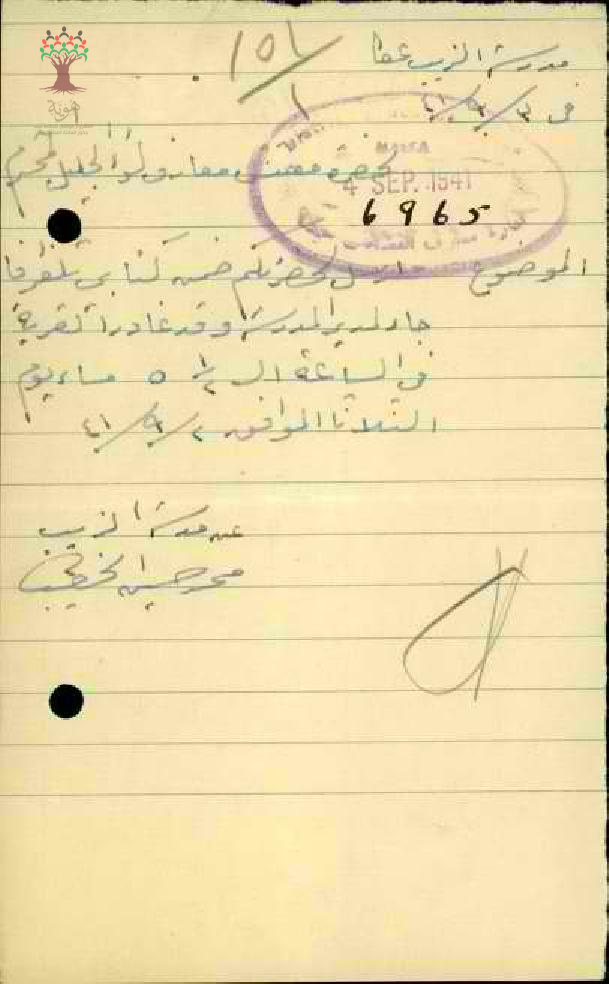 مدرسة الزيب عكا
١٥١
في ٣/٩/٤١
حضرة مفتش معارف لواء الجليل المحترم
HAIFA
4 SEP. 1941
6965
الموضوع ارسل لحضرتكم ضمن كتابي تلغرافا
جاء لمدير المدرسة وقد غادر القرية
في الساعة ال ½ ٥ مساء يوم
الثلاثا الموافق ٢/٩/٤١
عن مدرسة الزيب
محمد حسين الخطيب
هوية